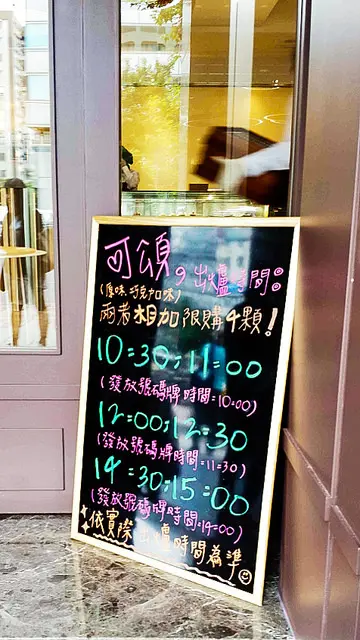 可頌。出爐時間:
(原味.巧克力口味)
兩者相加限購4顆!
10:30;11:00
(發放號碼牌時間:10:00)
12:00;12:30
(發放號碼牌時間:11:30)
14:30;15:00
(發放號碼牌時間:14:00)
依實際出爐時間為準